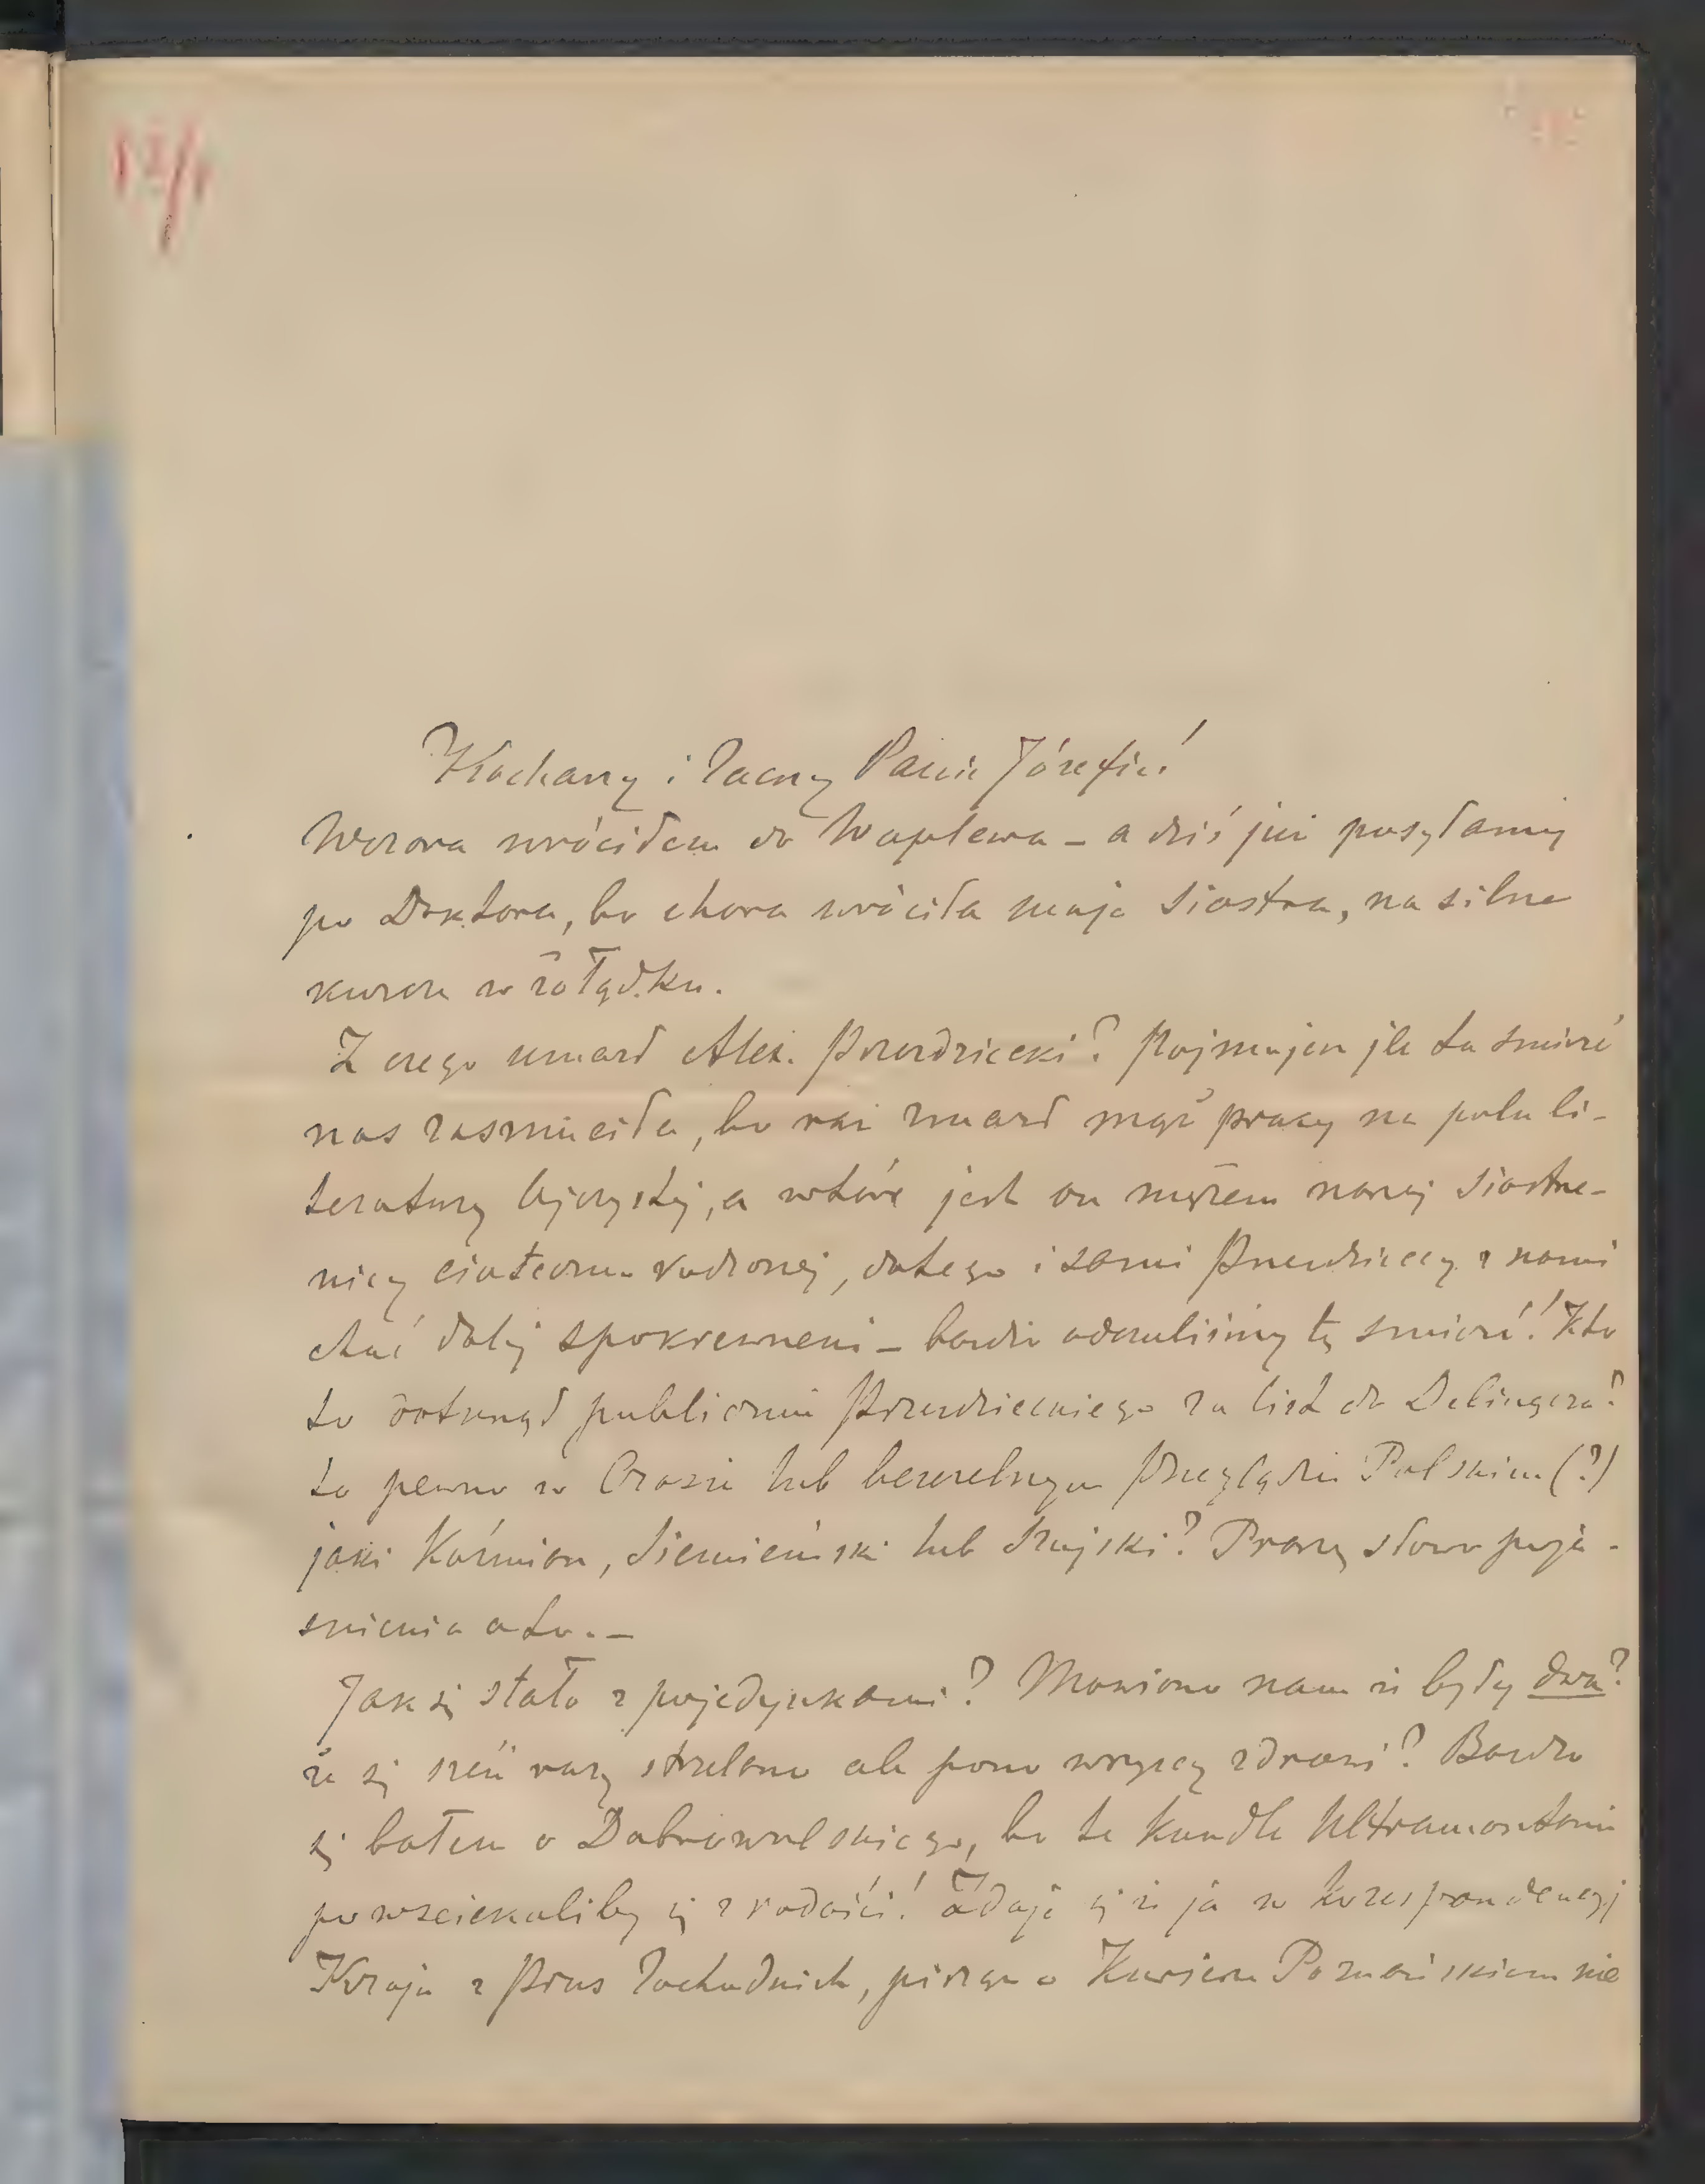 12/1
Kochany i Zacny Panie Józefie!
Wczora wróciłem do Waplewa – a dziś już posyłamy
po Doktora, bo chora wróciła moja siostra, na silne
kurcze w żołądku.
Z czego umarł Alex. Przezdziecki? Pojmujesz jle ta śmierć
nas zasmuciła, bo raz zmarł mąż pracy na polu li-
teratury ojczystej, a wtóre jest on mężem naszej siostrze-
nicy ciotecznu rodzonej, dotego i sami Przezdzieccy z nami
choć dalej spokrewneni – bardzo odczuliśmy tę śmierć! Kto
to publicznie Przezdzieckiego za list do Delingera?
to pewno w Czasie lub bezczelnym Przeglądzie Polskim (?)
jaki Koźmian, Siemieński lub Szujski? Proszę słowo poja-
śnienia oto. –
Jak się stało z pojedynkami? Mowiono nam iż były dwa?
że się sześć razy strzelano ale pono wszyscy zdrowi? Bardzo
się bałem o Dobrowolskiego, bo te kundle Ultramontanie
powsciekaliby się z radości! Zdaje się iż ja w korespondencyj
Kraju z Prus Zachodnich, pisząc o Kurierze Poznańskiem nie